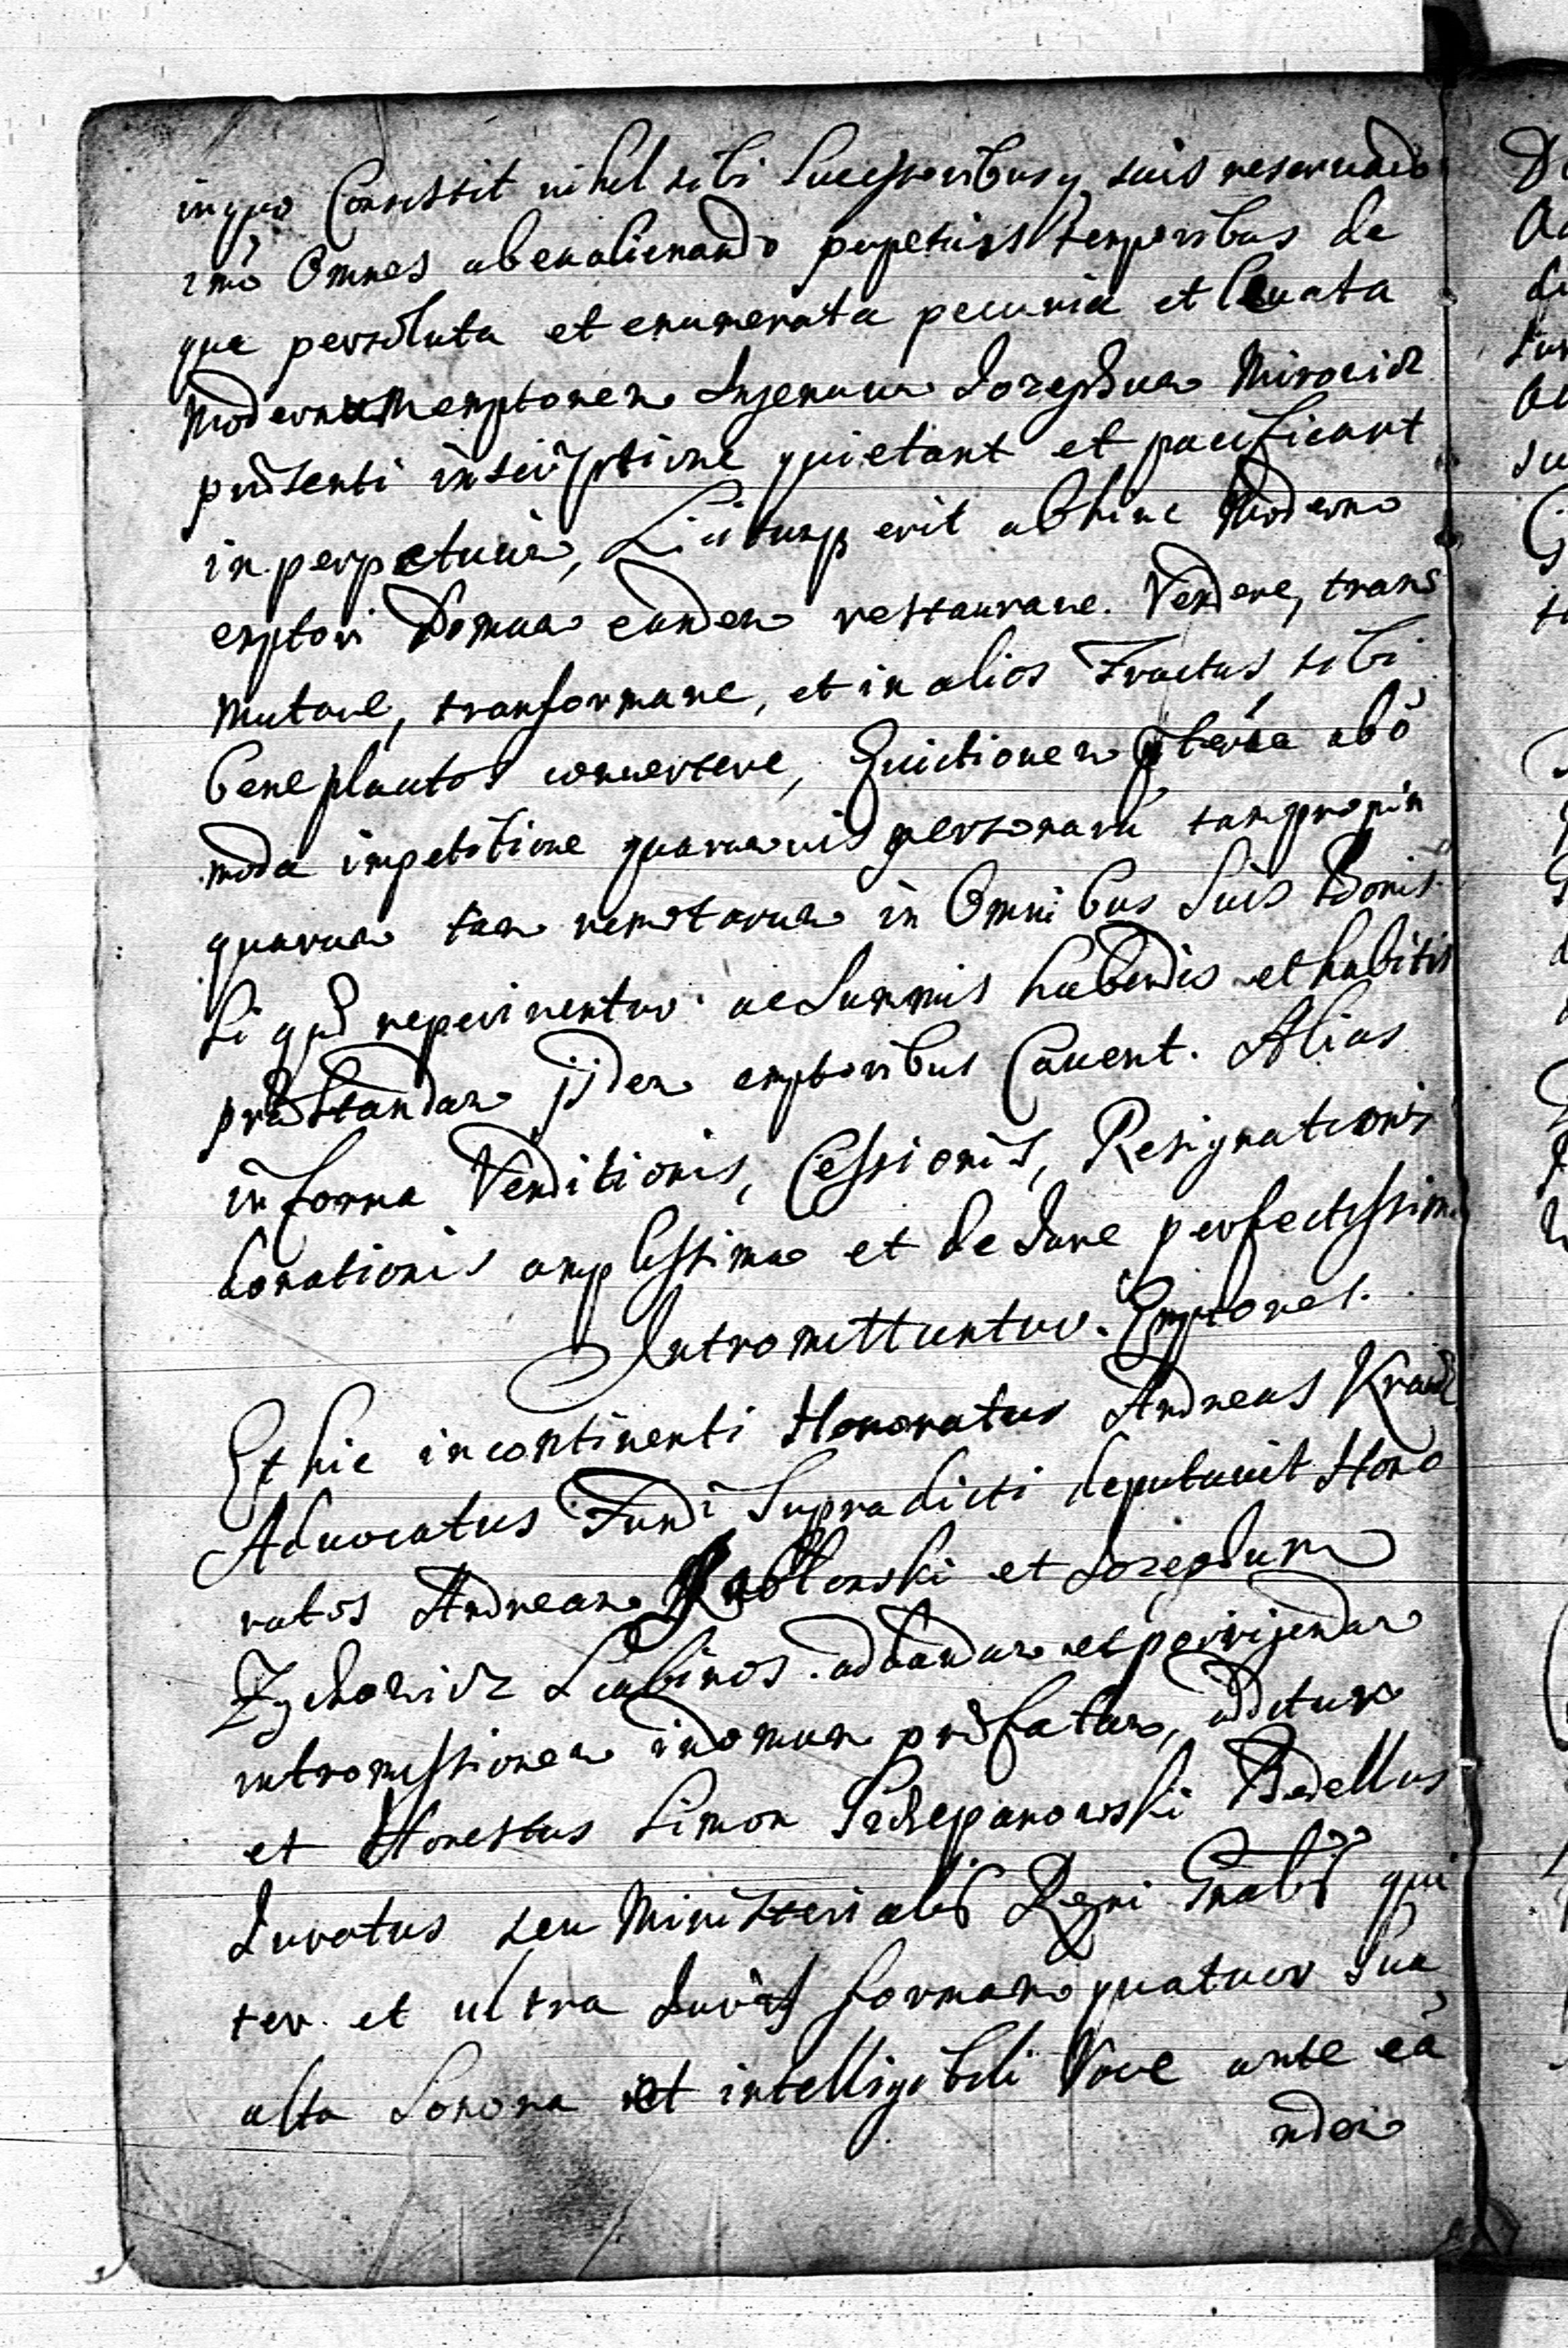 in quo Consistit nihil sibi Successoribusq suis reservando
imò Omnes abenalienando perpetuis temporibus de
qua persoluta et enumerata pecunia et levata
Modernum emptorem Ingenuum Josephum Mirowicz
præsenti inscriptione quietant et pacificant
in perpetuum, Licitumq erit abhinc Moderno
emptori Domum eandem restaurare. Vendere, trans
mutare, transformare, et in alios Fructus sibi
beneplacitos convertere, Evictionem abo
moda impetitione quarumvis personarū tam propin
quarum tam remotarum in Omnibus Suis Bonis
Si quæ reperirentur ac Summis habendis et habitis
præstandam ijdem emptoribus Cavent. Alias
in forma Venditionis, Cessionis, Resignationis
donationis amplissima et de Jure perfectissima
Intromittuntur Emptores.
Et hic incontinenti Honoratus Andreas
Advocatus Fundi Supradicti deputavit Hono
ratos Andream et Josephum
Zychowicz Scabinos ad dandam et porrigendam
intromissionem in domum præfatam, additum
et Honestus Simon Szczepanowski Bedellus
Juratus seu Ministerialis Regni Gnalis qui
ter et ultra Juris formam quatuor Sua
alta Sonora et intelligibili Voce ante eā
ndem